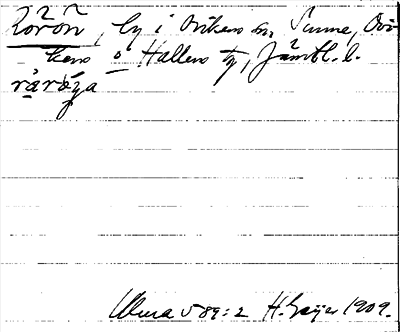 Rörön, by i Ovikens sn, Sunne, Ovi-
kens o Hallens tg, Jämtl. l.
råröya
Ulma 589:2 H. Geijer 1909.